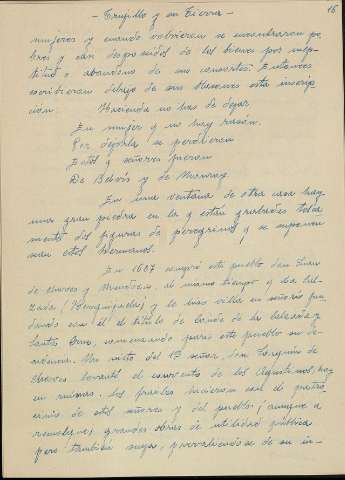 - Trujillo y su Tierra - 16
mujeres y cuando volvieron se encontraron po-
bres y aún desposeidos de los bienes por inep-
titud o abandono de sus consortes. Entonces
escribieron debajo de sus blasones esta inscrip-
ción. Hacienda no has de dejar
En mujer y no hay razón.
Por dejarla se perdieron
Estos y señores fueron
De Belvís y de Monroy.
En una ventana de otra casa hay
una gran piedra en la q están grabadas tosca
mente dos figuras de peregrinos y se suponen
sean estos hermanos.
En 1607 compró este pueblo don Juan
de Chaves y Mendoza, al mismo tiempo q la Cal-
zada (Romanguijada) y la hizo villa en señorío fun
dando con él el título de Conde de la Calzada y
Santa Cruz, comenzando para este pueblo su de-
cadencia. Un nieto del 1er señor, don Joaquín de
Chaves levantó el convento de los Agustinos, hoy
en ruinas. Los frailes hicieron con el patro
cinio de estos señores y del pueblo (aunque a
remolque) grandes obras de utilidad pública
pero también suyas, prevaliendose de su in-